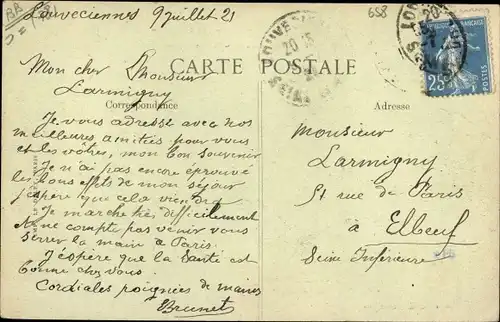 Louveciennes 9 juillet 21
658
CARTE POSTALE
Mon cher Monsieur
Larmigny
Correspondance
Je vous adresse avec nos
meilleures amitiés pour vous
et les vôtres, mon bon souvenir
Je n'ai pas encore éprouvé
les bons effets de mon séjour
j'espère que cela viendra
Je marche très difficilement
et ne compte pas venir vous
serrer la main à Paris
J'espère que la Santé est
bonne chez vous
Cordiales poignées de mains
Brunet
Adresse
Monsieur
Larmigny
St rue de Paris
à Elbeuf
Seine Inférieure
25
POSTES